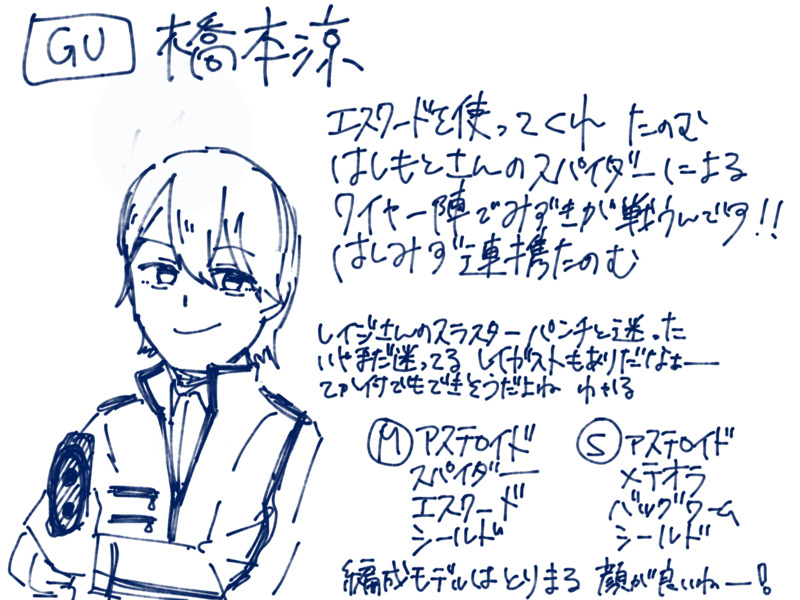 GU 橋本涼
エスワードを使ってくれ たのむ
はしもとさんのスパイダーによる
ワイヤー陣でみずきが戦うんです!!
はしみず連携たのむ
レイジさんのスラスターパンチと迷った
いやまだ迷ってる レイガストもありだなぁー
てかレイケでもできそうだよね わかる
M アステロイド
スパイダー
エスワード
シールド
S アステロイド
メテオラ
バッグワーム
シールド
編成モデルはとりまる 顔が良いわー!